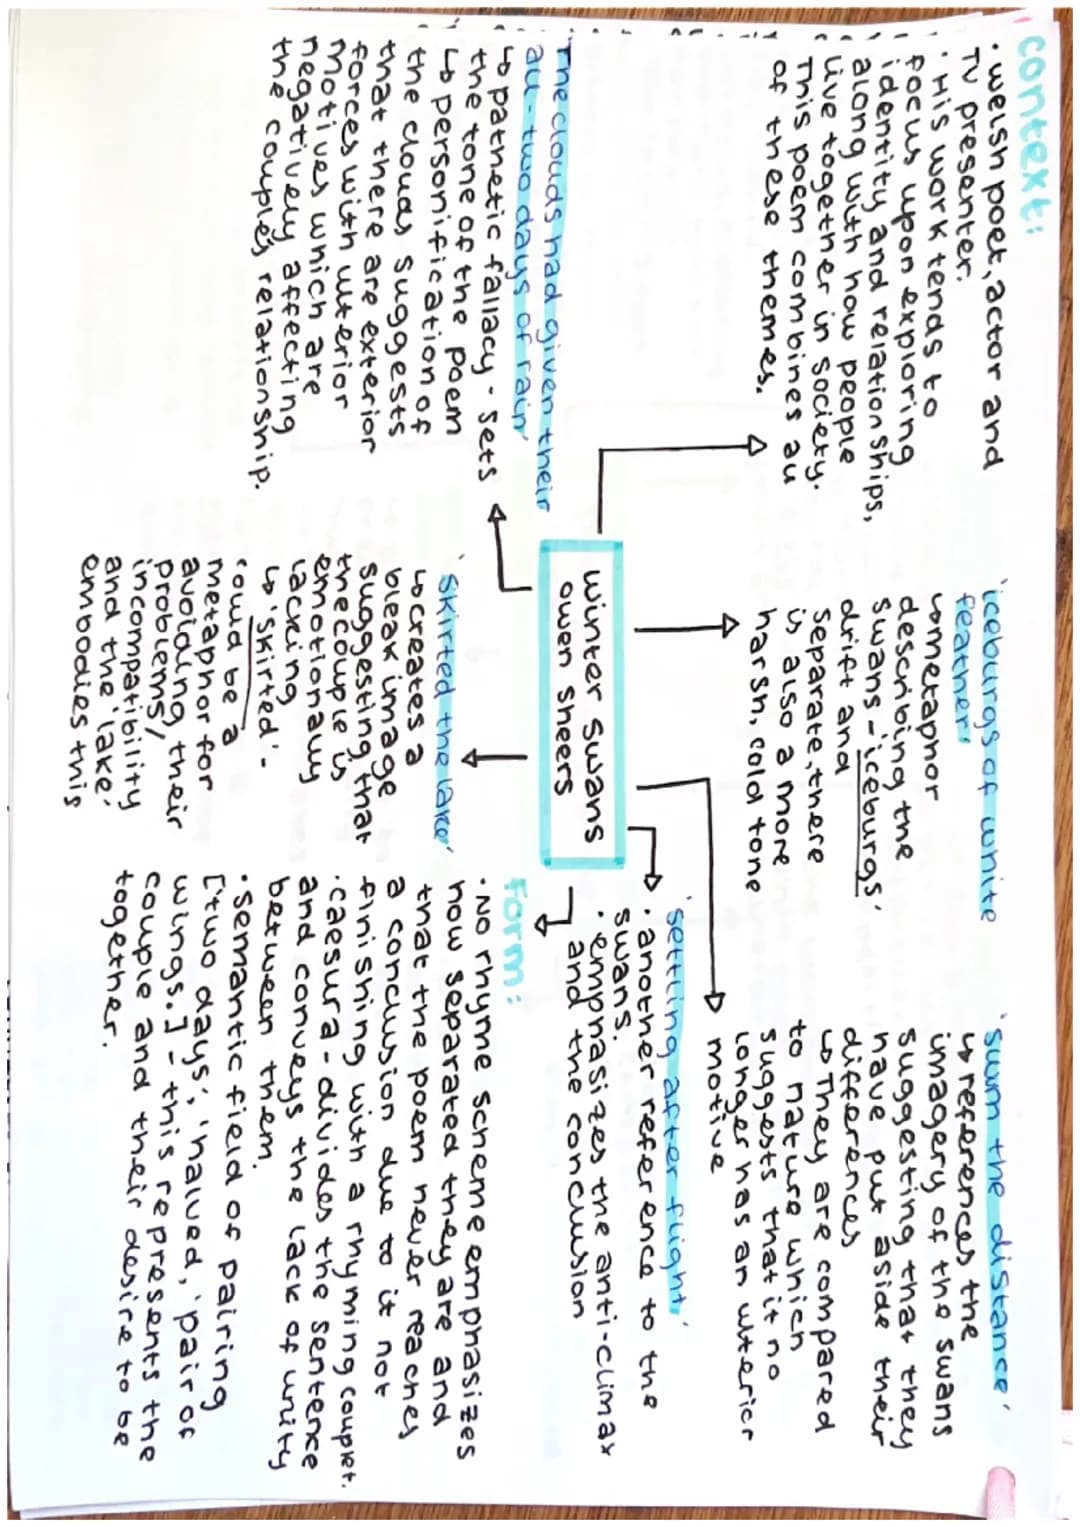 context:
· Welsh poet, actor and
TV presenter.
· His work tends to
focus upon exploring
identity and relationships,
along with how people
live together in society.
This poem combines all
of these themes.
'iceburgs of white
feather'
↳ metaphor
describing the
swans - 'iceburgs'
drift and
separate, there
is also a more
harsh, cold tone
'swum the distance'
↳ references the
imagery of the swans
suggesting that they
have put aside their
differences
↳ They are compared
to nature which
suggests that it no
longer has an ulterior
motive
'settling after flight'
· another reference to the
swans.
· emphasizes the anti-climax
and the conclusion
winter swans
owen sheers
'The clouds had given their
all - two days of rain'
↳ pathetic fallacy - sets
the tone of the poem
↳ personification of
the clouds suggests
that there are exterior
forces with ulterior
motives which are
negatively affecting
the couple's relationship.
'Skirted the lake'
↳ creates a
bleak image
suggesting that
the couple is
emotionally
lacking
↳ 'skirted' -
could be a
metaphor for
avoiding their
problems/
incompatibility
and the 'lake'
embodies this
form:
· No rhyme scheme emphasizes
how separated they are and
that the poem never reaches
a conclusion due to it not
finishing with a rhyming couplet.
· caesura - divides the sentence
and conveys the lack of unity
between them.
· semantic field of pairing
['two days', 'halved', 'pair of
wings.'] - this represents the
couple and their desire to be
together.